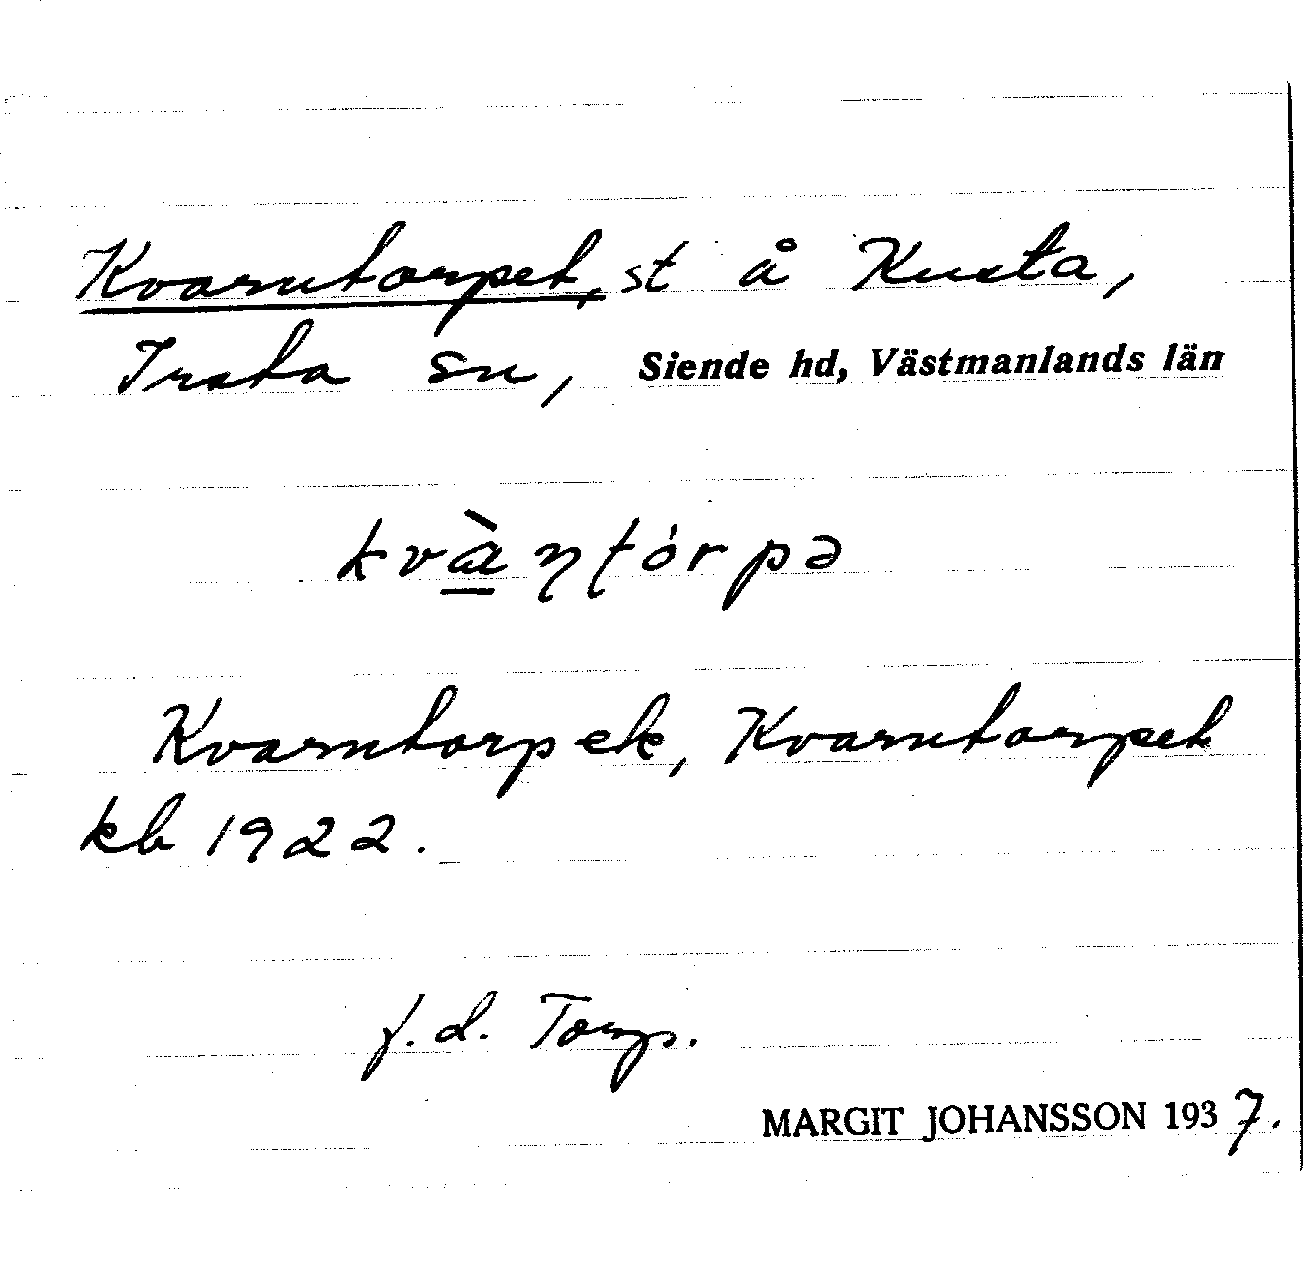 Kvarntorpet, st å Kusta,
Irsta sn, Siende hd, Västmanlands län
kvæ̀ɳʈórpə
Kvarntorpet, Kvarntorpet
kb 1922.
f.d. Torp.
MARGIT JOHANSSON 1937.